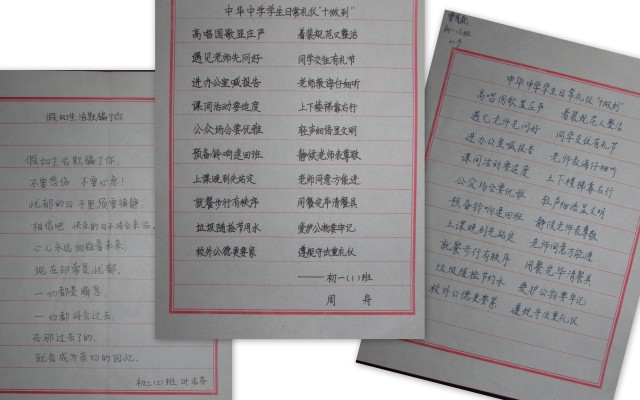 假如生活欺骗了你
假如生活欺骗了你,
不要悲伤 不要心急!
忧郁的日子里须要镇静,
相信吧 快乐的日子将会来临
心儿永远向往着未来,
现在却常是忧郁,
一切都是瞬息
一切都将会过去,
而那过去了的,
就会成为亲切的回忆.
初二(2)班
中华中学学生日常礼仪“十做到”
高唱国歌显庄严 着装规范又整洁
遇见老师先问好 同学交往有礼节
进办公室喊报告 老师教诲仔细听
课间活动要适度 上下楼梯靠右行
公众场合要优雅 轻声细语显文明
预备铃响速回班 静候老师表尊敬
上课晚到先站定 老师同意方能进
就餐步行有秩序 用餐完毕清餐具
垃圾随捡节用水 爱护公物要牢记
校外公德更要紧 遵规守法重礼仪
——初一(1)班
周舟
中华中学学生日常礼仪“十做到”
高唱国歌显庄严 着装规范又整洁
遇见老师先问好 同学交往有礼节
进办公室喊报告 老师教诲仔细听
课间活动要适度 上下楼梯靠右行
公众场合要优雅 轻声细语显文明
预备铃响速回班 静候老师表尊敬
上课晚到先站定 老师同意方能进
就餐步行有秩序 用餐完毕清餐具
垃圾随捡节约水 爱护公物要牢记
校外公德更要紧 遵规守法重礼仪